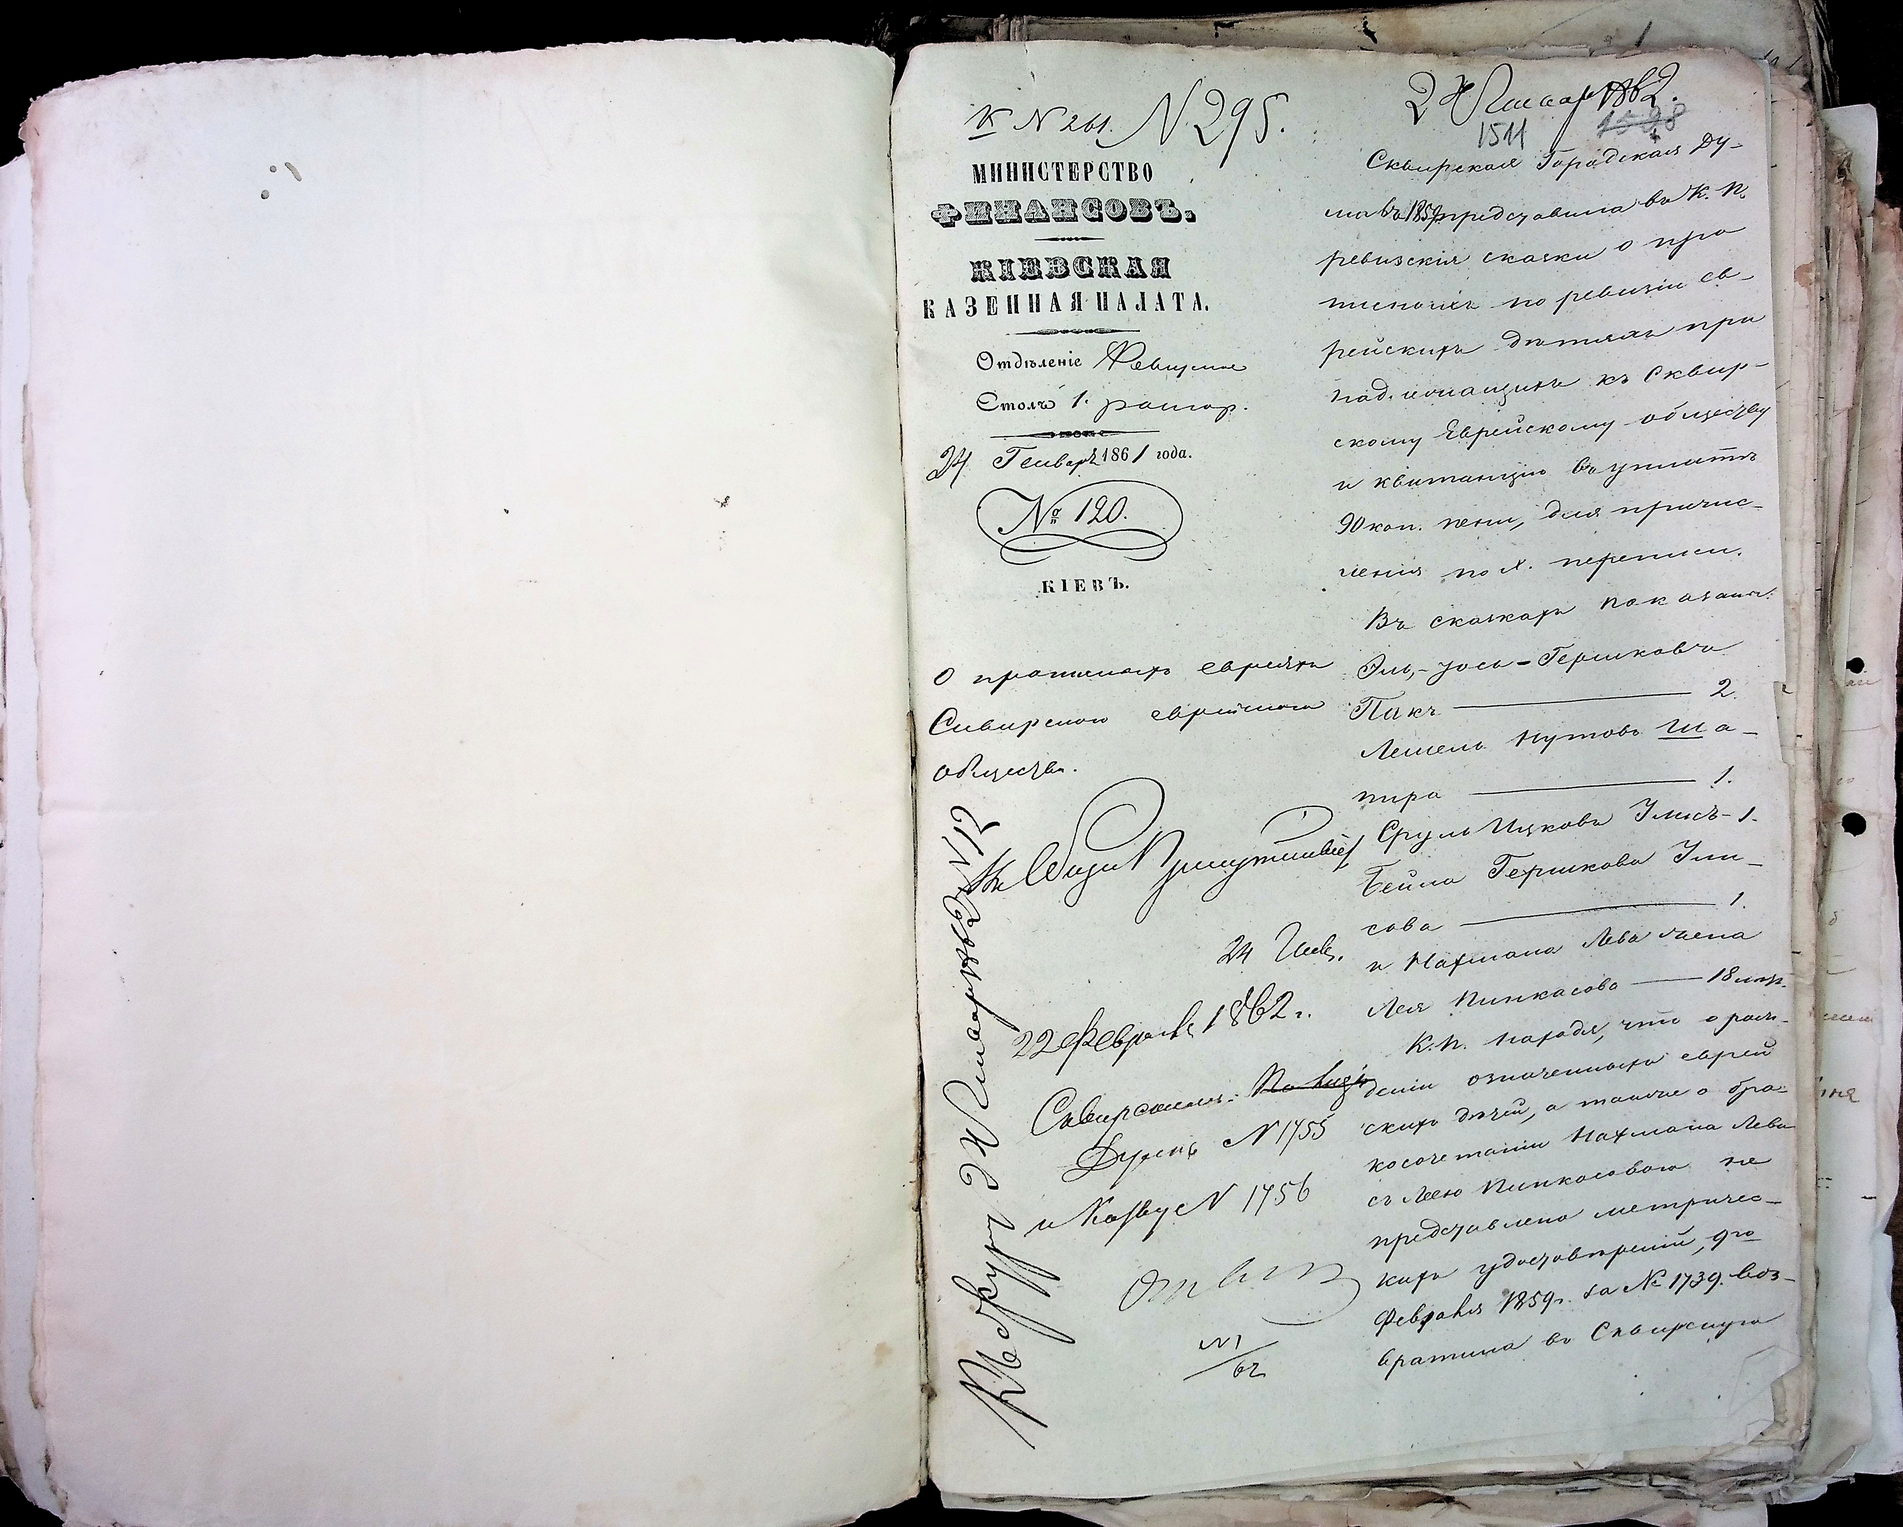 К N 261. N 295.
МИНИСТЕРСТВО
ФИНАНСОВЪ.
КІЕВСКАЯ
КАЗЕННАЯ ПАЛАТА.
Отдѣленіе Ревизское
Столъ 1.
24 Генваря 1861 года.
№ 120.
КІЕВЪ.
О прописныхъ евреяхъ
Сквирского еврейского
общества.
24 Генв.
22 Февраля 1862 г.
Сквирской
Думѣ N 1755
и N 1756
N 1
62
2 Января 1862.
1511 1598
Сквирская Городская Ду-
ма въ 1859 представила въ К. П.
ревизскія сказки о про
писныхъ по ревизіи ев-
рейскихъ дѣтяхъ при
надлежащихъ къ Сквир-
скому Еврейскому обществу
и квитанцію въ уплатѣ
90 коп. пени, для причис-
ленія по X. переписи.
Въ сказкахъ показаны:
Эль-Іось-Гершковъ
Пакъ 2.
Лейзеръ Нутовъ Ша-
пира 1.
Сруль Ицковъ Улисъ - 1.
Бейла Гершкова Ули-
сова 1.
и Нахмана Лева жена
Лея Пинкасова 18 лѣтъ.
К. П. находя, что о рож-
деніи означенныхъ еврей
скихъ дѣтей, а также о бра-
косочетаніи Нахмана Лева
съ Леею Пинкасовою не
представлено метричес-
кихъ удостовѣреній, 9го
Февраля 1859 г. за № 1739. воз-
вратила въ Сквирскую